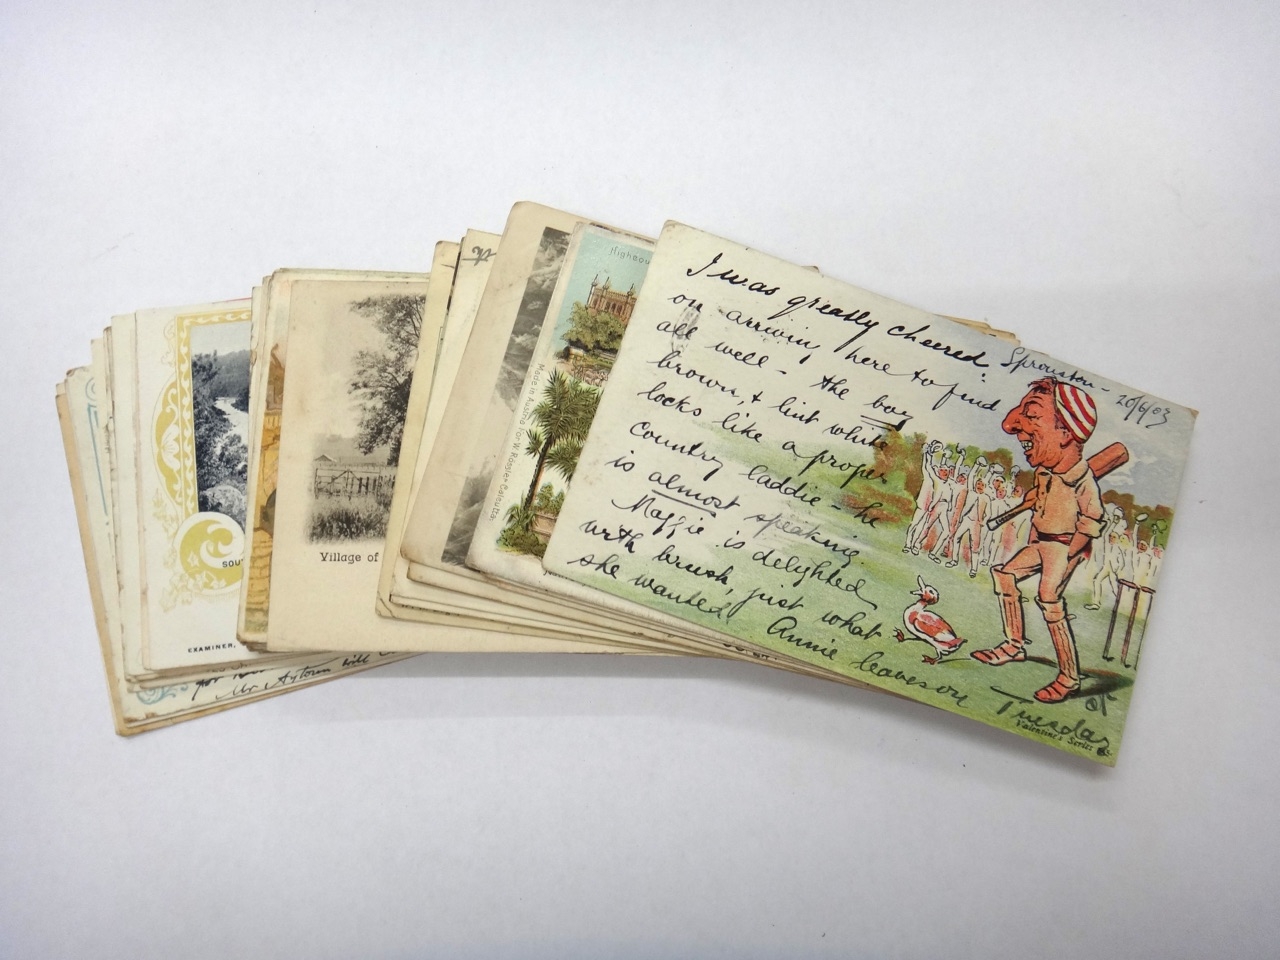 I was greatly cheered
on arriving here to find
all well - the boy
brown, & lint white
locks like a proper
country laddie - he
is almost speaking
Maggie is delighted
with brush, just what
she wanted. Annie leaves on
Tuesday
Sprouston -
20/6/03
Valentine's Series
Made in Austria For W. Rossler Calcutta.
Village of
SOU
EXAMINER,
Mr. Aytoun will